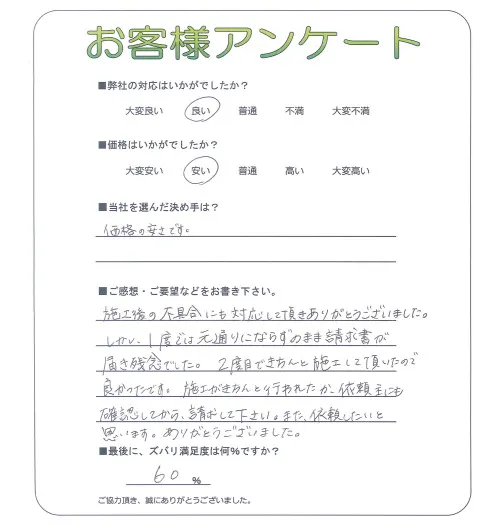 お客様アンケート
■弊社の対応はいかがでしたか？
大変良い 良い 普通 不満 大変不満
■価格はいかがでしたか？
大変安い 安い 普通 高い 大変高い
■当社を選んだ決め手は？
価格の安さです。
■ご感想・ご要望などをお書き下さい。
施工後の不具合にも対応して頂きありがとうございました。
しかし、1度では元通りにならずのまま請求書が
届き残念でした。2度目できちんと施工して頂いたので
良かったです。施工がきちんと行われたか、依頼主にも
確認してから、請求して下さい。また、依頼したいと
思います。ありがとうございました。
■最後に、ズバリ満足度は何%ですか？
60 %
ご協力頂き、誠にありがとうございました。